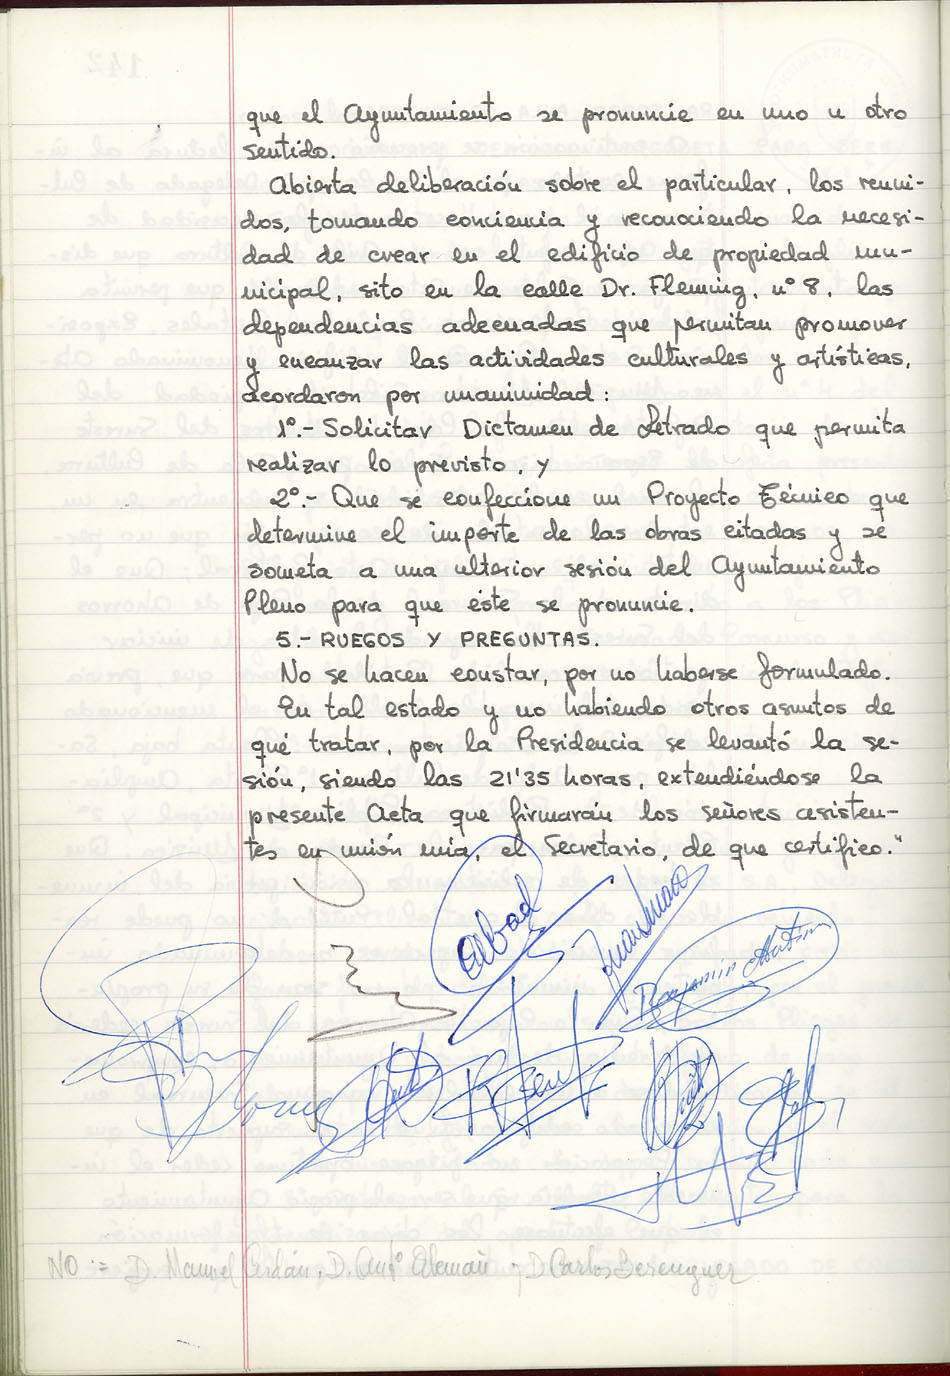 que el Ayuntamiento se pronuncie en uno u otro
sentido.
Abierta deliberación sobre el particular, los reuni-
dos, tomando conciencia y reconociendo la necesi-
dad de crear en el edificio de propiedad mu-
nicipal, sito en la calle Dr. Fleming, nº 8, las
dependencias adecuadas que permitan promover
y encauzar las actividades culturales y artísticas,
acordaron por unanimidad:
1º.- Solicitar Dictamen de Letrado que permita
realizar lo previsto, y
2º.- Que se confeccione un Proyecto Técnico que
determine el importe de las obras citadas y se
someta a una ulterior sesión del Ayuntamiento
Pleno para que éste se pronuncie.
5.- RUEGOS Y PREGUNTAS.
No se hacen constar, por no haberse formulado.
En tal estado y no habiendo otros asuntos de
qué tratar, por la Presidencia se levantó la se-
sión, siendo las 21'35 horas, extendiéndose la
presente Acta que firmarán los señores asisten-
tes en unión mía, el Secretario, de que certifico."
Abad
Benjamín
NO := D. Manuel Cerdán, D. Antº Alemañ y D. Carlos Berenguer